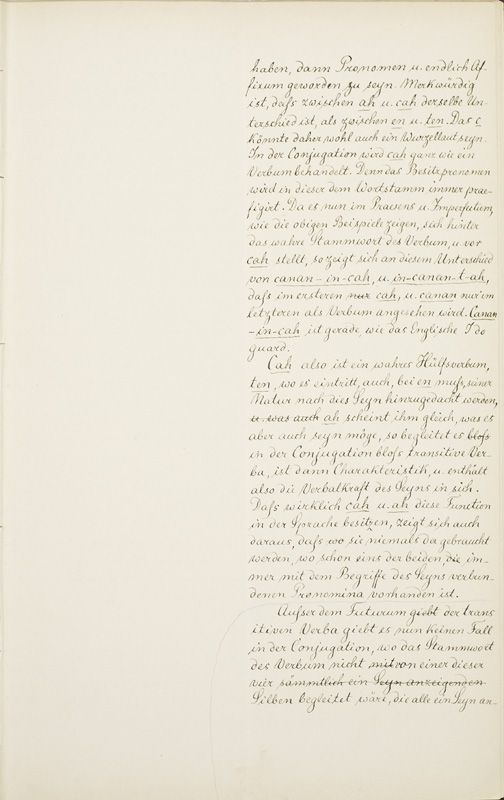 haben, dann Pronomen u. endlich Af-
fixum geworden zu seyn. Merkwürdig
ist, daſs zwischen ah u. cah derselbe Un-
terschied ist, als zwischen en u. ten. Das c
könnte daher wohl auch ein Wurzellaut seyn.
In der Conjugation wird cah ganz wie ein
Verbum behandelt. Denn das Besitzpronomen
wird in dieser dem Wortstamm immer prae-
figirt. Da es nun im Praesens u. Imperfectum,
wie die obigen Beispiele zeigen, sich hinter
das wahre Stammwort des Verbum, u. vor
cah stellt, so zeigt sich an diesem Unterschied
von canan-in-cah, u. in-canan-t-ah,
daſs im ersteren nur cah, u. canan nur im
letzteren als Verbum angesehen wird. Canan
-in-cah ist gerade, wie das Englische I do
guard.
Cah also ist ein wahres Hülfsverbum,
ten, wo es eintritt, auch, bei en muſs, seiner
Natur nach dies Seyn hinzugedacht werden,
u. was auch ah scheint ihm gleich, was es
aber auch seyn möge, so begleitet es bloſs
in der Conjugation bloſs transitive Ver-
ba, ist dann Charakteristik, u. enthält
also die Verbalkraft des Seyns in sich.
Daſs wirklich cah u. ah diese Function
in der Sprache besitzen, zeigt sich auch
daraus, daſs wo sie niemals da gebraucht
werden, wo schon eins der beiden, die im-
mer mit dem Begriffe des Seyns verbun-
denen Pronomina vorhanden ist.
Auſser dem Futurum giebt der trans
itiven Verba giebt es nun keinen Fall
in der Conjugation, wo das Stammwort
des Verbum nicht mit von einer dieser
vier sämmtlich ein Seyn anzeigenden
Silben begleitet wäre, die alle ein Seyn an-